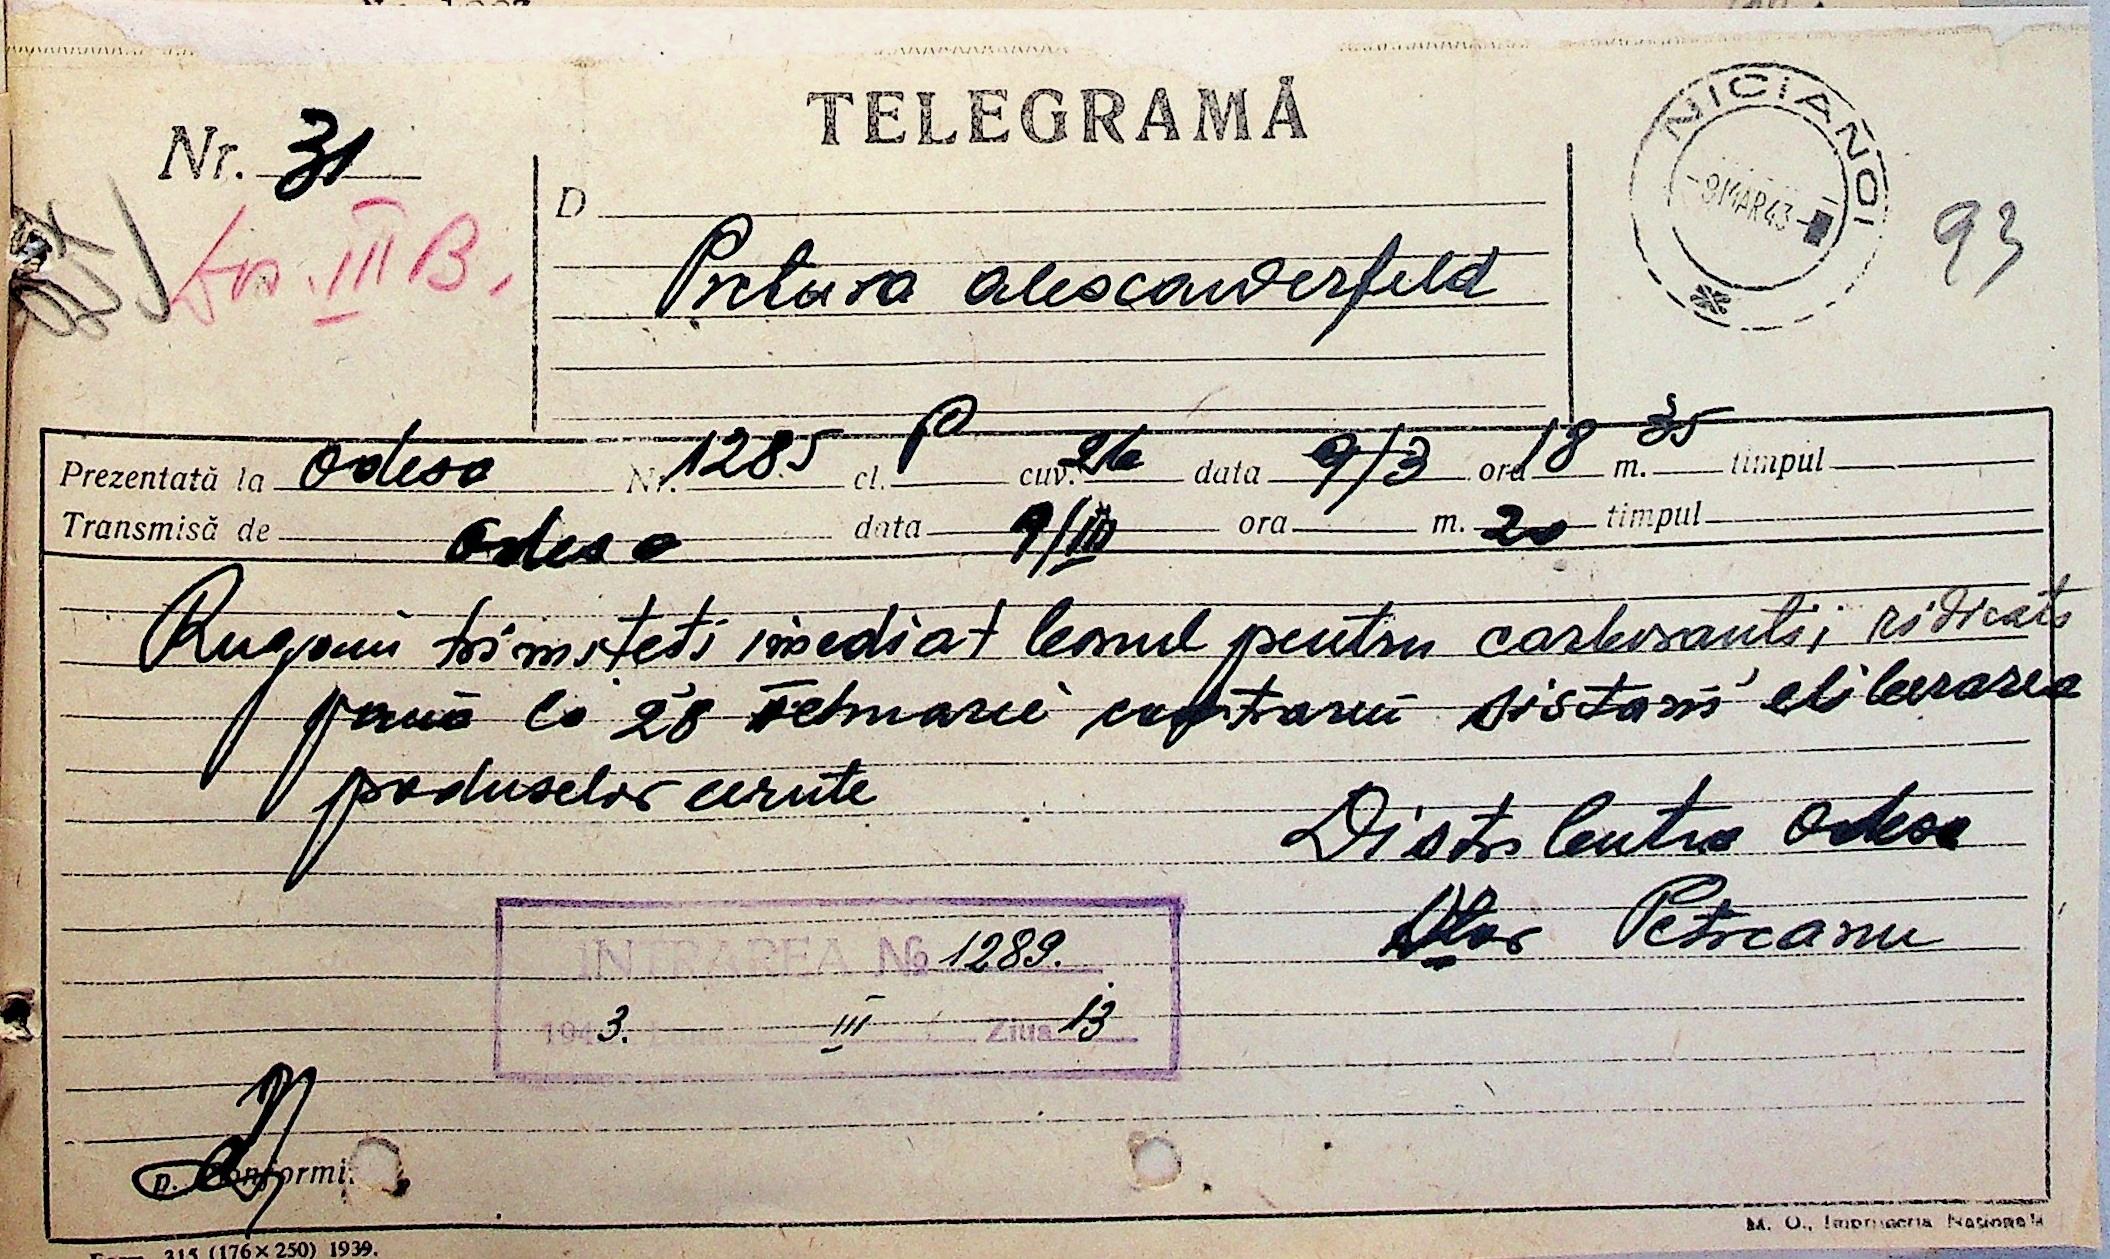 TELEGRAMĂ
Nr. 31
Dos. III B.
D
Pretura alexanderfeld
NICIANOI
MAR 43
93
Prezentată la odesa Nr. 1285 cl. P cuv. 26 data 9/3 ora 18 m. 35 timpul
Transmisă de odesa data 9/III ora m. 20 timpul
Rugam trimiteti imediat bonul pentru carburantii ridicati
pana la 28 Februarie contrariu sistam eliberarea
produselor cerute
Distr Centru Odesa
Petreanu
INTRAREA No 1289.
1943. Luna III Ziua 13
p. conformi.
M. O., Imprimeria Națională
Form. 315 (176×250) 1939.